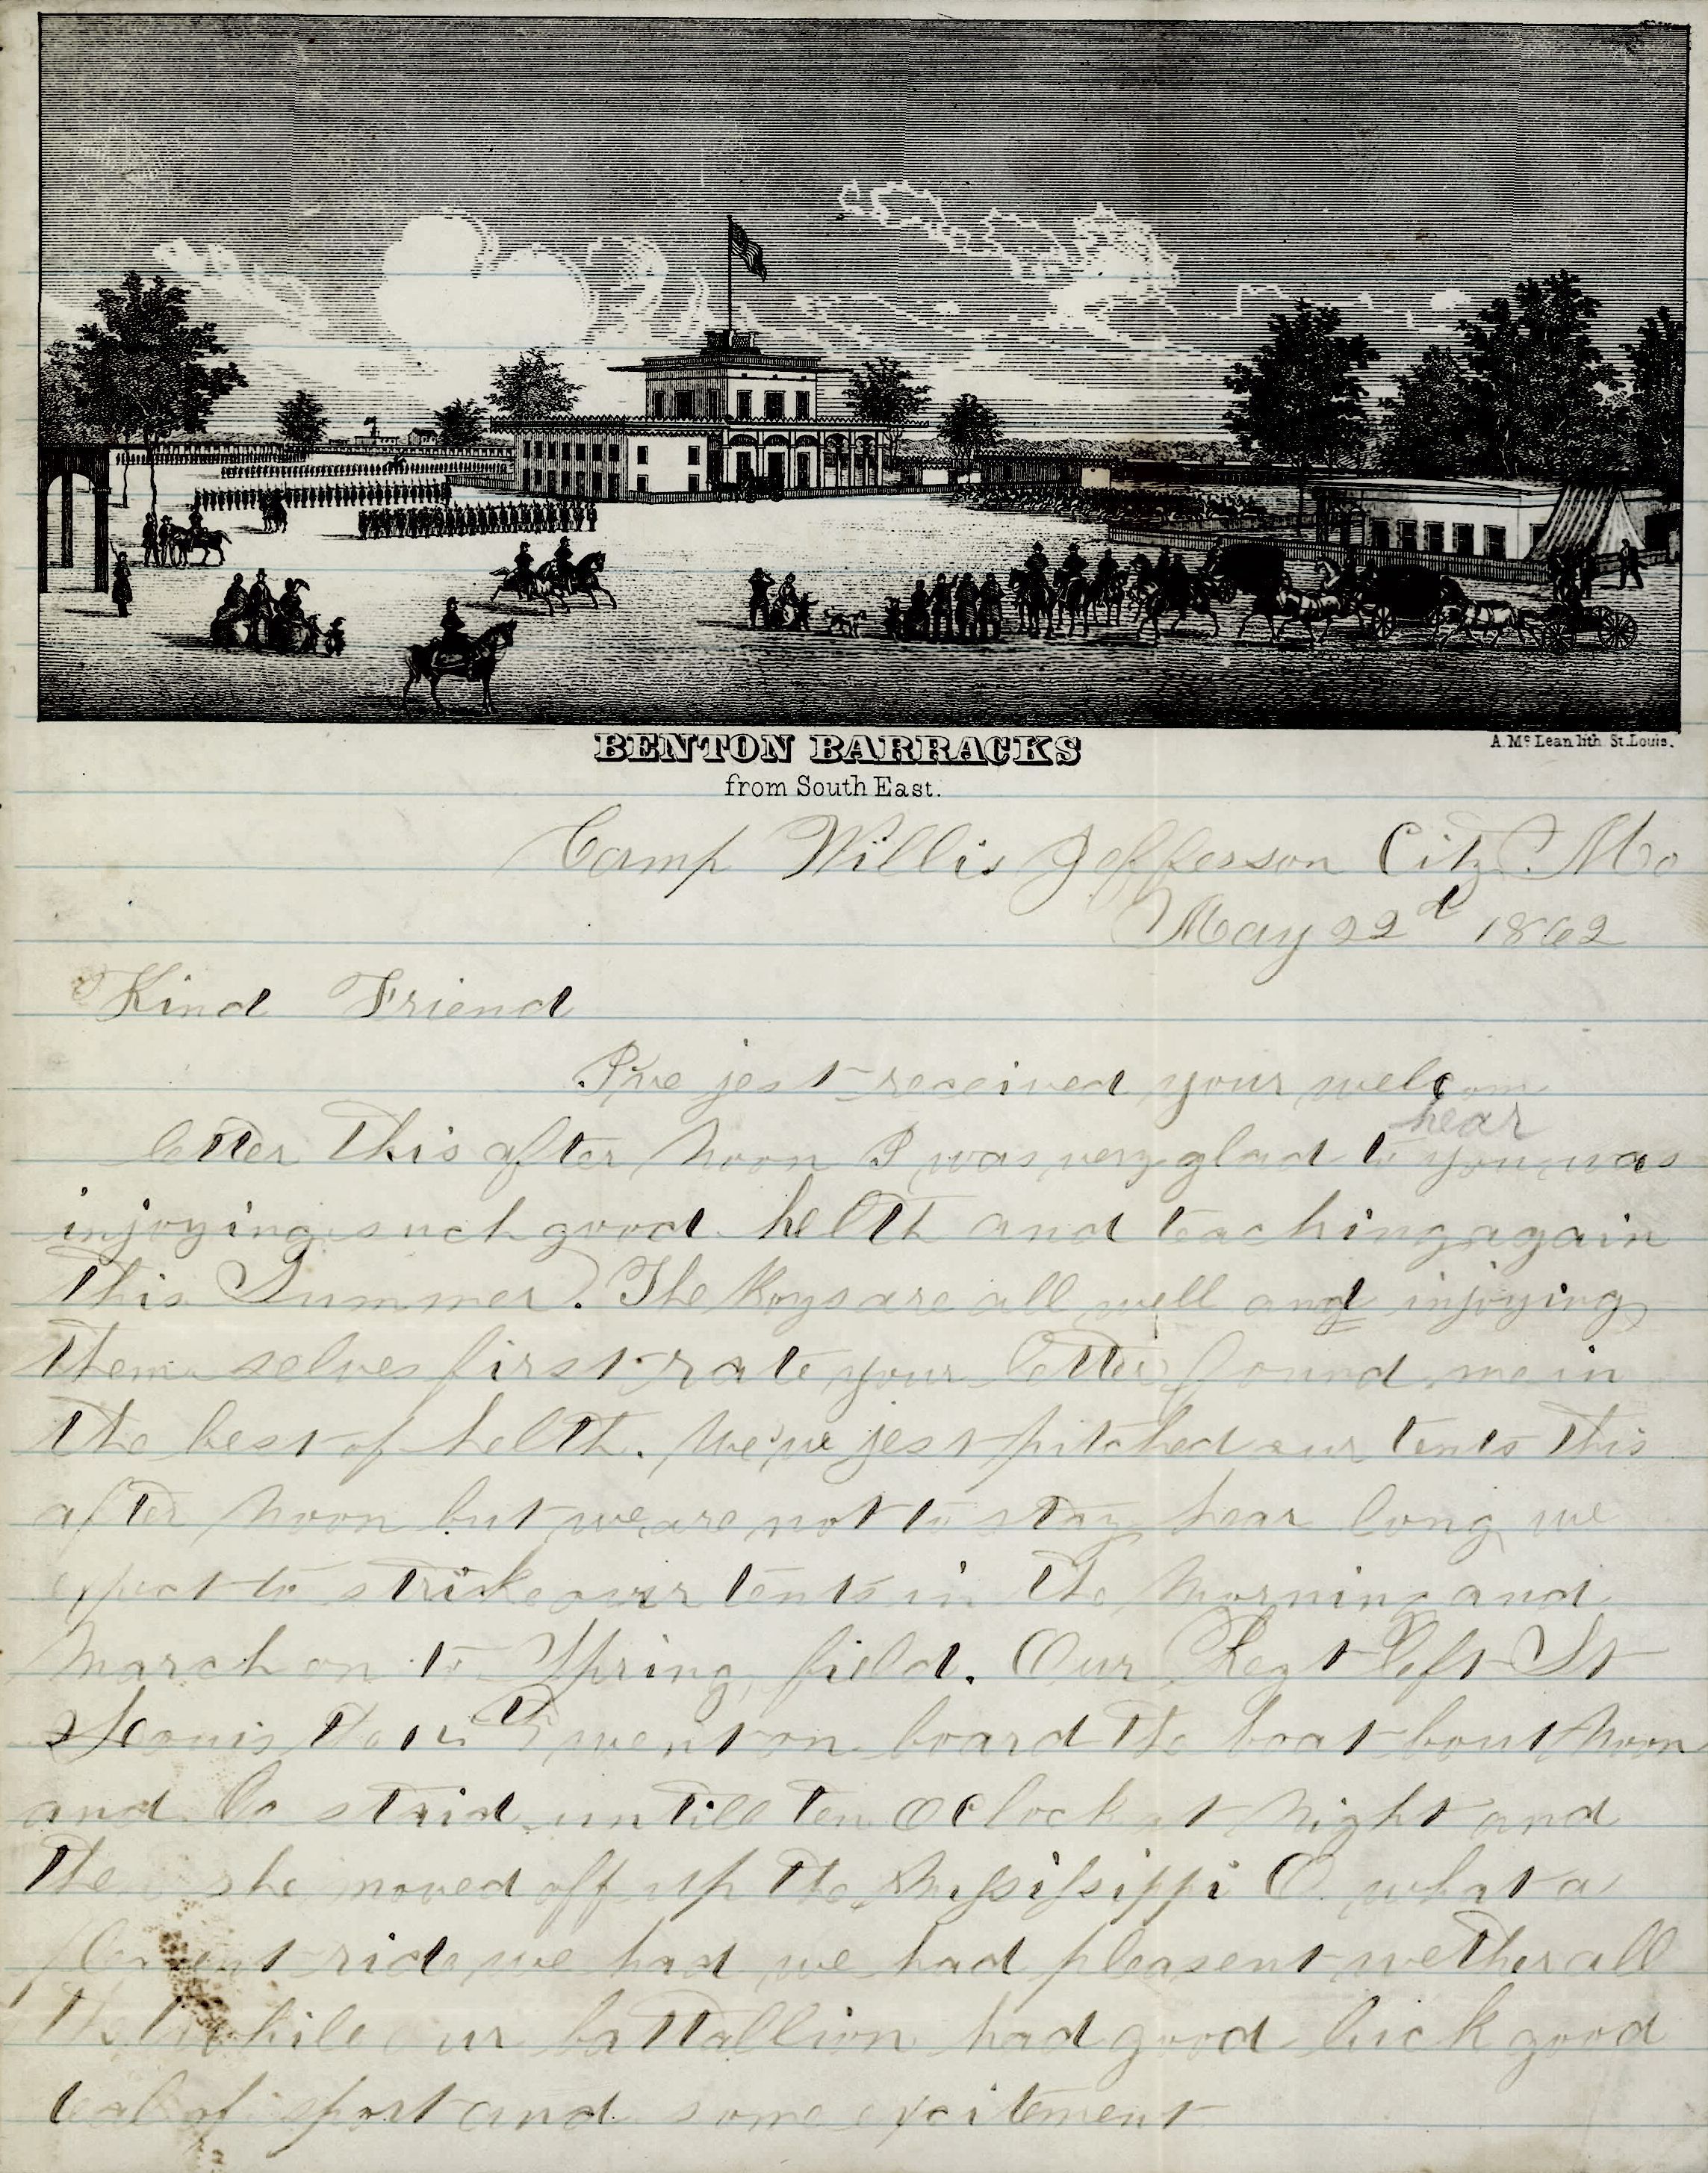 BENTON BARRACKS
A. Mc Lean lith. St. Louis.
from South East.
Camp Willis Jefferson City Mo
May 22d 1862
Kind Friend
I've jest received your welcom
hear
letter this after noon I was very glad to you was
injoying such good helth and teaching again
this Summer. The Boys are all well and injoying
them selves first rate your letter found me in
the best of helth. We've jest pitched our tents this
after noon but we are not to stay hear long we
expect to strike our tents in the morning and
march on to Spring field. Our Regt left St
Louis went on board the boat bout noon
and staid untill ten Oclock at night and
the she moved off up the Missisippi O what a
pleasent ride we had we had pleasent wether all
the while our battallion had good luck good
eal of sport and some excitement